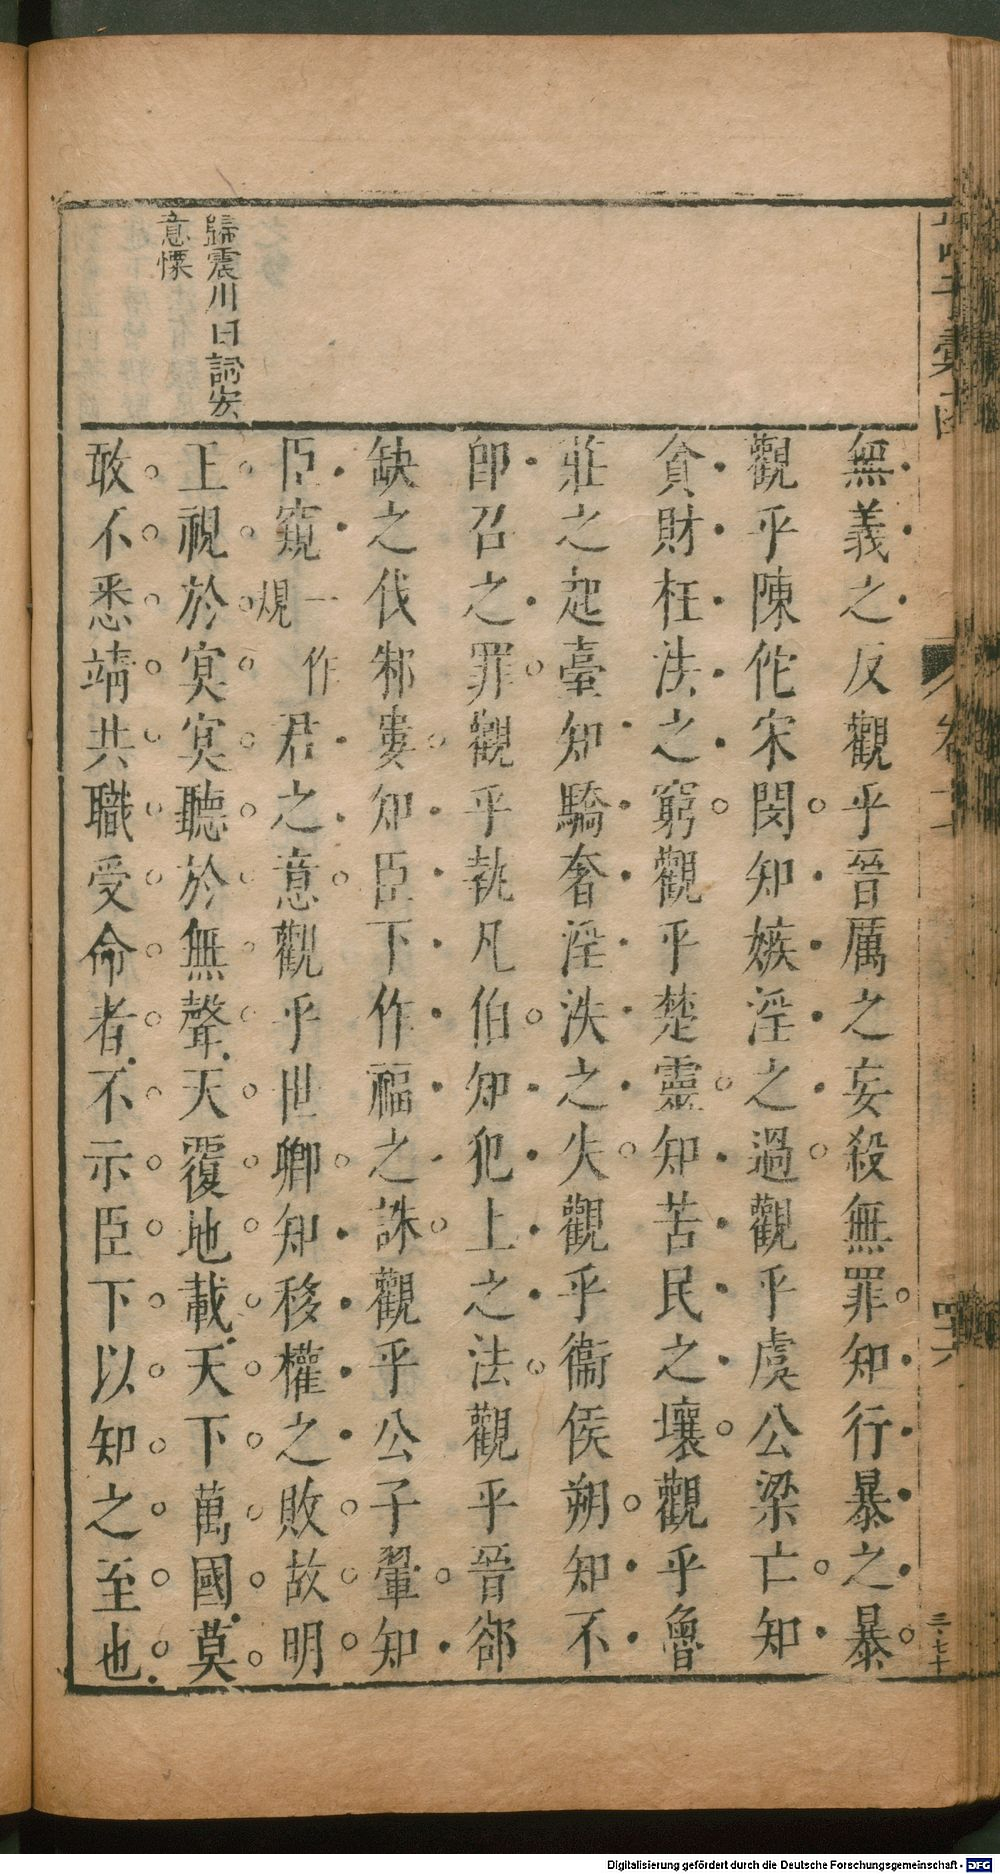 卷
四六
三七十
無義之反觀乎晉厲之妄殺無罪知行暴之暴
觀乎陳佗宋閔知嫉淫之過觀乎虞公梁亡知
貪財枉法之窮觀乎楚靈知苦民之壤觀乎魯
莊之起臺知驕奢淫泆之失觀乎衞侯朔知不
卽召之罪觀乎執凡伯知犯上之法觀乎晉郤
缺之伐邾婁知臣下作福之誅觀乎公子翬知
臣窺一作規君之意觀乎世卿知移權之敗故明
王視於冥冥聽於無聲天覆地載天下萬國莫
敢不悉靖共職受命者不示臣下以知之至也
歸震川曰詞安
意慄
Digitalisierung gefördert durch die Deutsche Forschungsgemeinschaft - DFG